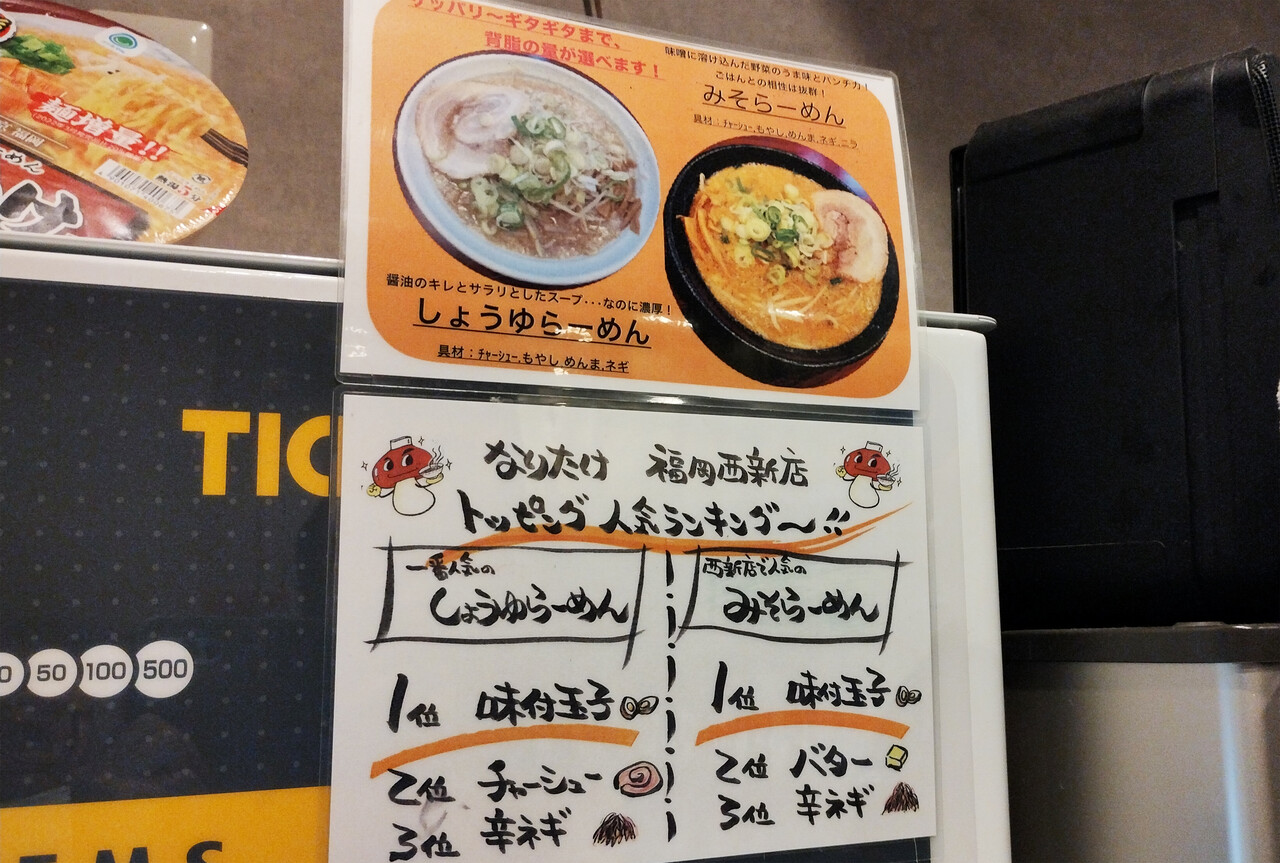 サッパリ～ギタギタまで、
背脂の量が選べます！
味噌に溶け込んだ野菜のうま味とパンチ力！
ごはんとの相性は抜群！
みそらーめん
具材：ﾁｬｰｼｭｰ,もやし,めんま,ネギ,ニラ
醤油のキレとサラリとしたスープ･･･なのに濃厚！
しょうゆらーめん
具材：ﾁｬｰｼｭｰ,もやし めんま,ネギ
麺増量!!
福岡
めん
熱湯5分
TIC
50 100 500
EMS
なりたけ 福岡西新店
トッピング人気ランキング～!!
一番人気の
しょうゆらーめん
1位 味付玉子
2位 チャーシュー
3位 辛ネギ
西新店で人気の
みそらーめん
1位 味付玉子
2位 バター
3位 辛ネギ